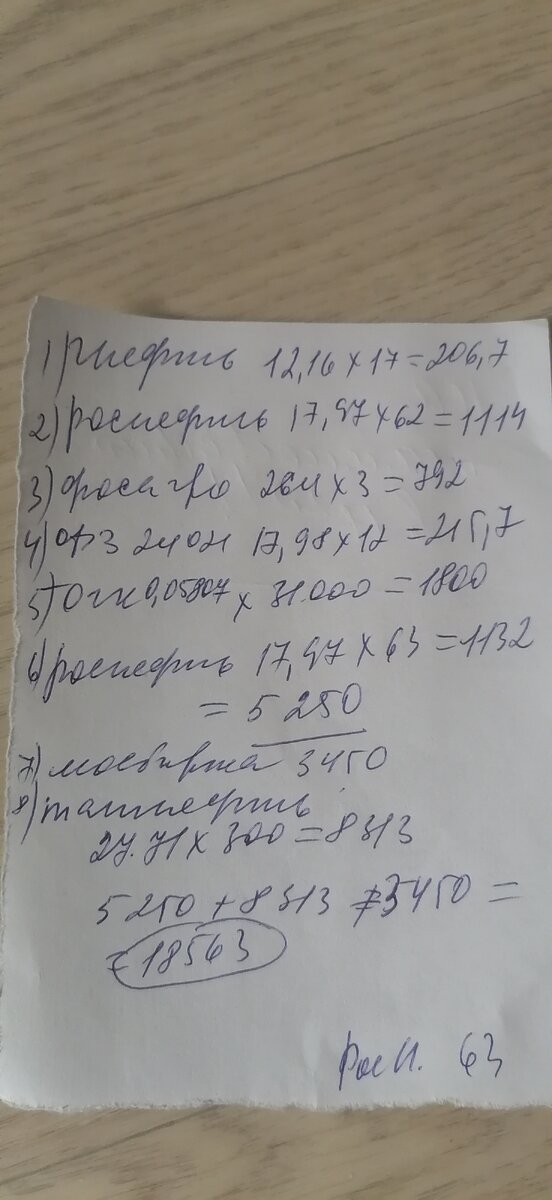 1) Рнефть 12,16 х 17 = 206,7
2) роснефть 17,97 х 62 = 1114
3) фосагро 264 х 3 = 792
4) 17,98 х 12 = 215,7
5) 0,05807 х 31.000 = 1800
6) роснефть 17,97 х 63 = 1132
= 5 250
7) мосбиржа 3450
8) татнефть
27.71 х 300 = 8313
5 250 + 8313 + 3450 =
= 18563
Рос Н. 63